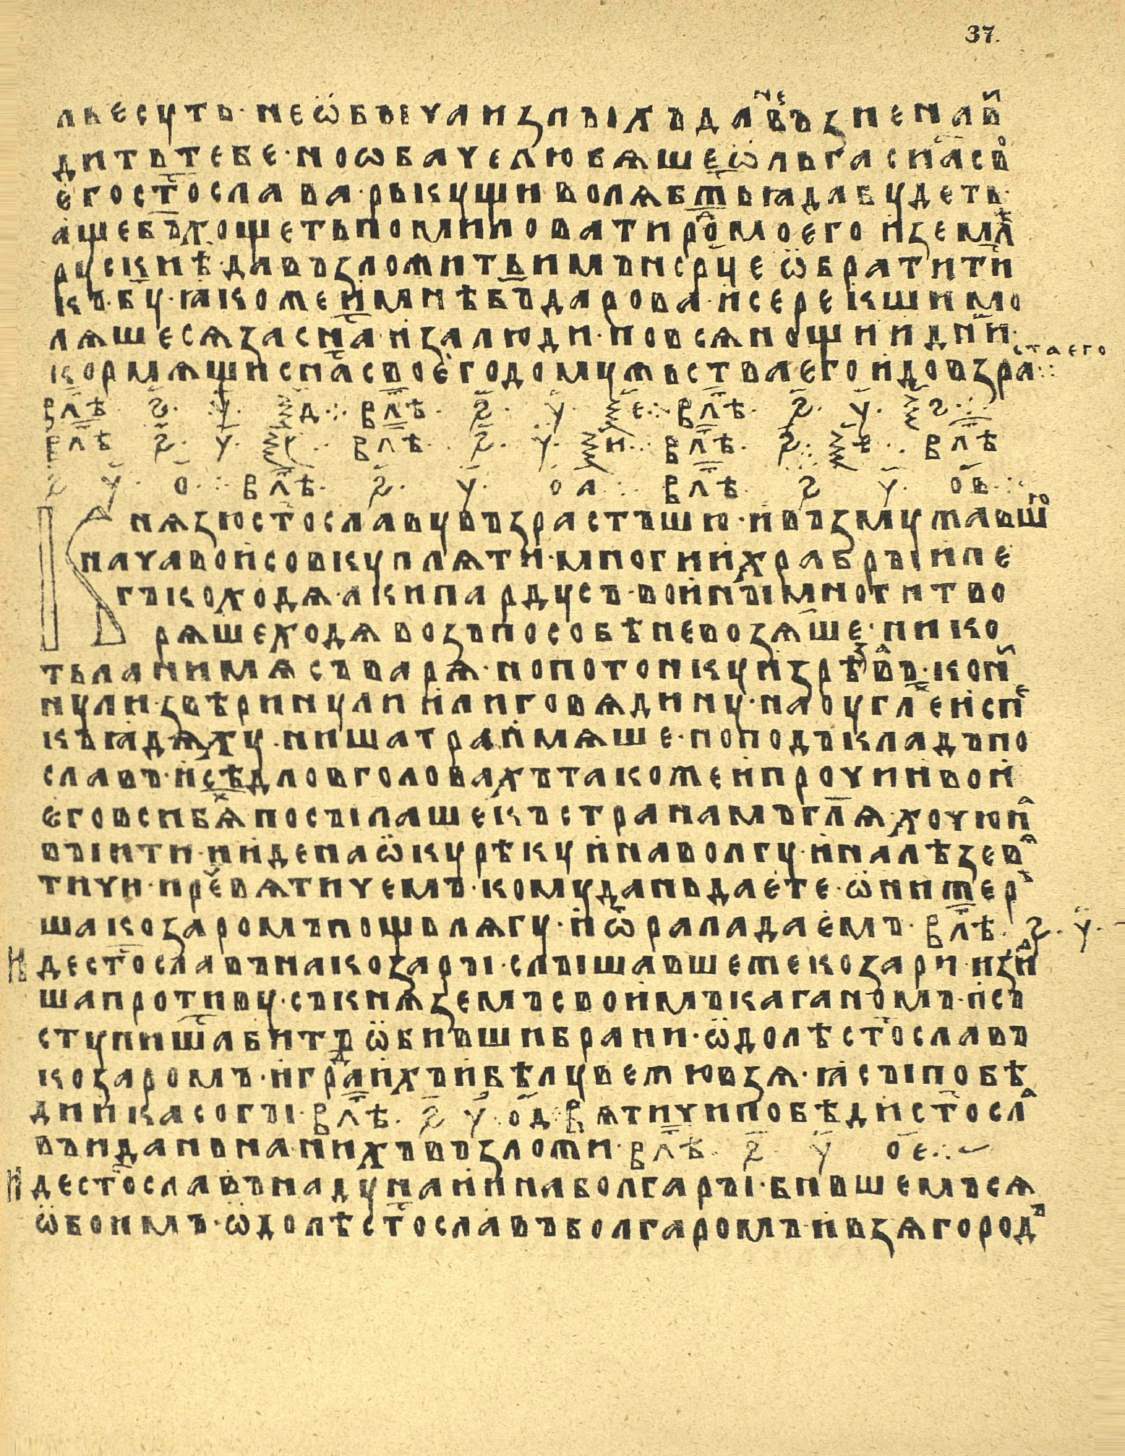 37.
льесуть · не ѡ̈бъıчаи злъıхъ да не въз̾ненави
дить тебе · но ѡбаче любѧше ѡ̈льга сн҃а сво
его ст҃ослава · рькущи волѧ бж҃ьꙗ да будеть ·
аще бъ҃ хощеть помиловати ро̑ моего и̇ земл̑ѣ
рускиѣ · да възложить имъ на ср҃це ѡ̈братити
къ бу҃ · ꙗкоже и̇ мнѣ бъ҃ дарова · и̇ се рекши мо
лѧшесѧ за сн҃а и̇ за люди · по всѧ нощи и дн҃и ·
кормѧщи сн҃а своего до мужьства его и̇ до възраста его ⁘
в лѣ҃ . ҂ѕ҃ . у҃ . ѯд҃ ⁘ в лѣ҃ . ҂ѕ҃ . у҃ . ѯе҃ ⁘ в лѣ҃ . ҂ѕ҃ . у҃ . ѯѕ҃ ⁘
в лѣ҃ . ҂ѕ҃ . у҃ . ѯз҃ ⁘ в лѣ҃ . ҂ѕ҃ . у҃ . ѯи҃ ⁘ в лѣ҃ . ҂ѕ҃ . ѯѳ҃ ⁘ в лѣ҃
҂ѕ҃ . у҃ . о҃ ⁘ в лѣ҃ . ҂ѕ҃ . у҃ . оа҃ ⁘ в лѣ҃ . ҂ѕ҃ . у҃ . ов҃ ⁘
Кнѧзю ст҃ославу възрастъшю · и̇ възмужавшю
нача вои̇ совкуплѧти · многи и̇ храбръı и̇ ле
гъко ходѧ · аки пардусъ · вои̇нъı многи тво
рѧше ходѧ возъ по собѣ не возѧше · ни ко
тьла ни мѧсъ варѧ · но потонку изрѣзавъ · кони
ну ли · звѣрину ли и̇ли говѧдину · на оуглех и̇спе
къ ꙗдѧху · ни шатра и̇мѧше · но подъкладъ по
славъ · и̇ сѣдло в головахъ такоже и̇ прочии вои̇
его вси бѧху посъıлаше къ странамъ гл҃ѧ · хочю на
въı ити · и̇ иде на ѡ̈ку рѣку и̇ на волгу · и̇ налѣзе вѧ
тичи · и реч̑ вѧтичемъ · кому дань даете · ѡ̈ни же рѣ
ша козаромъ по щьлѧгу · и̇ ѿ рала даемъ · в лѣ҃ . ҂ѕ҃ . у҃ .
Иде ст҃ославъ на козаръı · слъıшавше же козари · изи̇до
ша противу · съ кнѧземъ своимъ каганомъ · и̇ съ
ступишасѧ битъ ѡ̈бивъши брани · ѡ̈долѣ ст҃ославъ
козаромъ · и̇ град ихъ и̇ бѣлу вежю взѧ · ꙗсъı побѣ
ди и̇ касогъı · в лѣ҃ . ҂ѕ҃ . у҃ . од҃ . вѧтичи побѣди ст҃осла
въ и дань на нихъ възложи · в лѣ҃ . ҂ѕ҃ . у҃ . ое҃ ⁘
Иде ст҃ославъ на дунаи̇ и̇ на болгаръı · бивше мъсѧ
ѡ̈боимъ · ѡ̈долѣ ст҃ославъ болгаромъ и̇ взѧ городъ